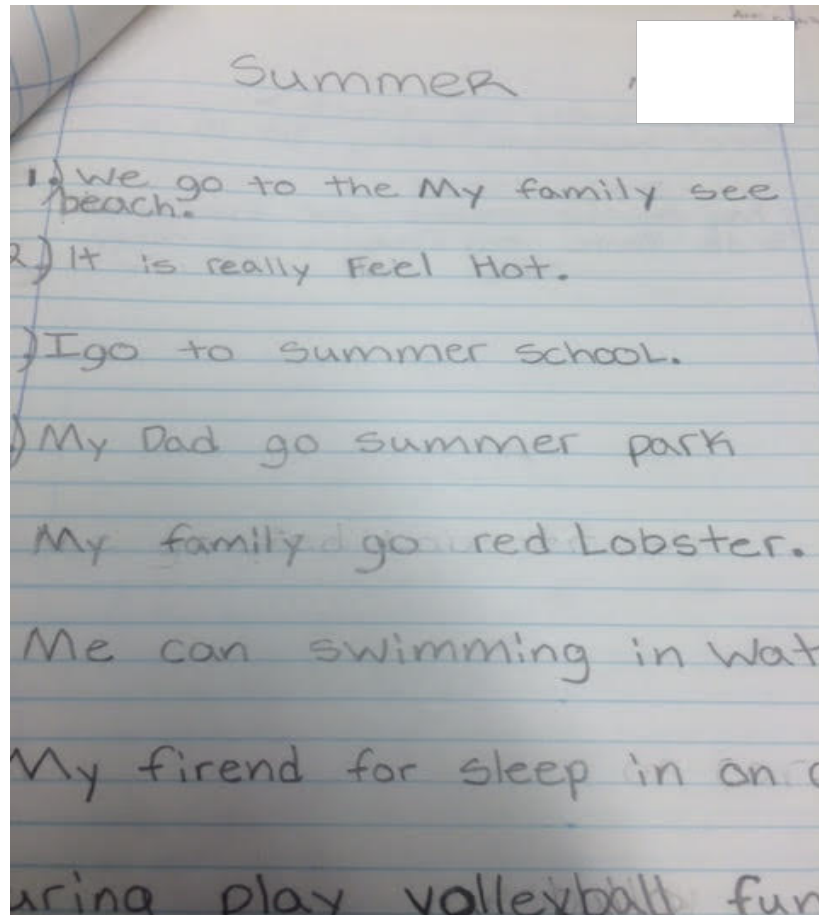 Summer
1.) We go to the My family see
beach.
2.) It is really Feel Hot.
) I go to summer school.
) My Dad go summer park
My family go red Lobster.
Me can swimming in Wat
My firend for sleep in on
uring play volleyball fun